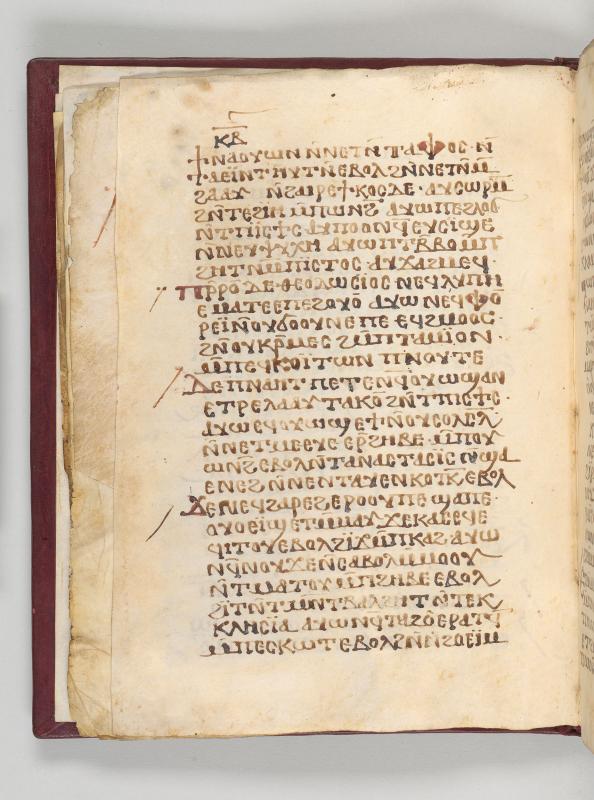 ⲕⲃ
ϯⲛⲁⲟⲩⲱⲛ ⲛ̄ⲛⲉⲧⲛ̄ⲧⲁⲫⲟⲥ ⲛ̄
ⲧⲁⲉⲓⲛⲧⲏⲩⲧⲛ̄ ⲉⲃⲟⲗϩⲛ̄ⲛⲉⲧⲛ̄ⲙ̄
ϩⲁⲁⲩ ⲛ̄ϩⲁⲓⲣⲉϯⲕⲟⲥ ⲇⲉ· ⲁⲩⲥⲱⲣⲙ̄
ϩⲛ̄ⲧⲉϩⲓⲏ ⲙ̄ⲡⲱⲛϩ̄ ⲁⲩⲱ ⲡⲉϩⲗⲟϭ
ⲛ̄ⲧⲡⲓⲥϯⲥ ⲁⲩⲡⲟⲟⲛϥ̄ ⲉⲩⲥⲓϣⲉ
ⲛ̄ⲛⲉⲩⲯⲩⲭⲏ ⲁⲩⲱ ⲡⲧⲃ̄ⲃⲟ ⲙ̄ⲡ
ϩⲏⲧ ⲙ̄ⲡⲓⲥⲧⲟⲥ· ⲁⲩϫⲁϩⲙⲉϥ·
ⲡⲣ̄ⲣⲟ ⲇⲉ ⲑⲉⲟⲇⲱⲥⲓⲟⲥ ⲛⲉϥⲗⲩⲡⲏ
ⲉⲙⲁⲧⲉ ⲉⲡⲉϩⲟⲩⲟ̄ ⲁⲩⲱ ⲛⲉϥⲫⲟ
ⲣⲉⲓ̈ ⲛ̄ⲟⲩϭⲟⲟⲩⲛⲉ ⲡⲉ ⲉϥϩⲙⲟⲟⲥ
ϩⲛ̄ⲟⲩⲕⲣ̄ⲙⲉⲥ ϩⲙ̄ⲡⲧⲁⲙⲓ̈ⲟⲛ·
ⲙ̄ⲡⲉϥⲕⲟⲓ̈ⲧⲱⲛ ⲡⲛⲟⲩⲧⲉ
ⲇⲉ ⲡⲛⲁⲏⲧ· ⲡⲉⲧⲉⲛϥ̄ⲟⲩⲱϣ ⲁⲛ
ⲉⲧⲣⲉⲗⲁⲁⲩ ⲧⲁⲕⲟ ϩⲛ̄ⲧⲡⲓⲥϯⲥ·
ⲁⲩⲱ ⲉϥⲟⲩⲱϣ ⲉϯⲛ̄ⲟⲩⲥⲟⲗⲥⲗ̄
ⲛ̄ⲛⲉⲧⲙⲉⲉⲩⲉ ⲉⲣϩⲏⲃⲉ· ⲙ̄ⲡⲟⲩ
ⲱⲛϩ̄ ⲉⲃⲟⲗ ⲛ̄ⲧⲁⲛⲁⲥⲧⲁⲥⲓ̈ⲥ ⲛ̄ϣⲁ
ⲉⲛⲉϩ ⲛ̄ⲛⲉⲛⲧⲁⲩⲉⲛⲕⲟⲧⲕ̄ ⲉⲃⲟⲗ
ϫⲉ ⲛⲉϥϩⲁⲣⲉϩ ⲉⲣⲟⲟⲩ ⲡⲉ ϣⲁⲡⲉ·
ⲟⲩⲟⲉⲓ̈ϣ ⲉⲧⲙ̄ⲙⲁⲩ ϫⲉⲕⲁⲥ ⲉϥⲉ
ϥⲓⲧⲟⲩ ⲉⲃⲟⲗϩⲓ̈ϫⲙ̄ⲡⲕⲁϩ ⲁⲩⲱ
ⲛϥ̄ⲛⲟⲩϫⲉ ⲛ̄ⲥⲁⲃⲟⲗ ⲙ̄ⲙⲟⲟⲩ
ⲛ̄ⲧⲙⲁⲧⲟⲩ ⲙ̄ⲡϩⲏⲃⲉ ⲉⲃⲟⲗ
ϩⲓ̈ⲧⲛ̄ⲧⲙⲛ̄ⲧⲃⲁⲗϩⲏⲧ ⲛ̄ⲧⲉⲕ
ⲕⲗⲏⲥⲓ̈ⲁ ⲁⲩⲱ ⲛϥ̄ⲧⲁϩⲟ̄ ⲉⲣⲁⲧϥ̄
ⲙ̄ⲡⲉⲥⲕⲱⲧ ⲉⲃⲟⲗϩⲛ̄ⲛ̄ϩⲟⲉⲓⲙ